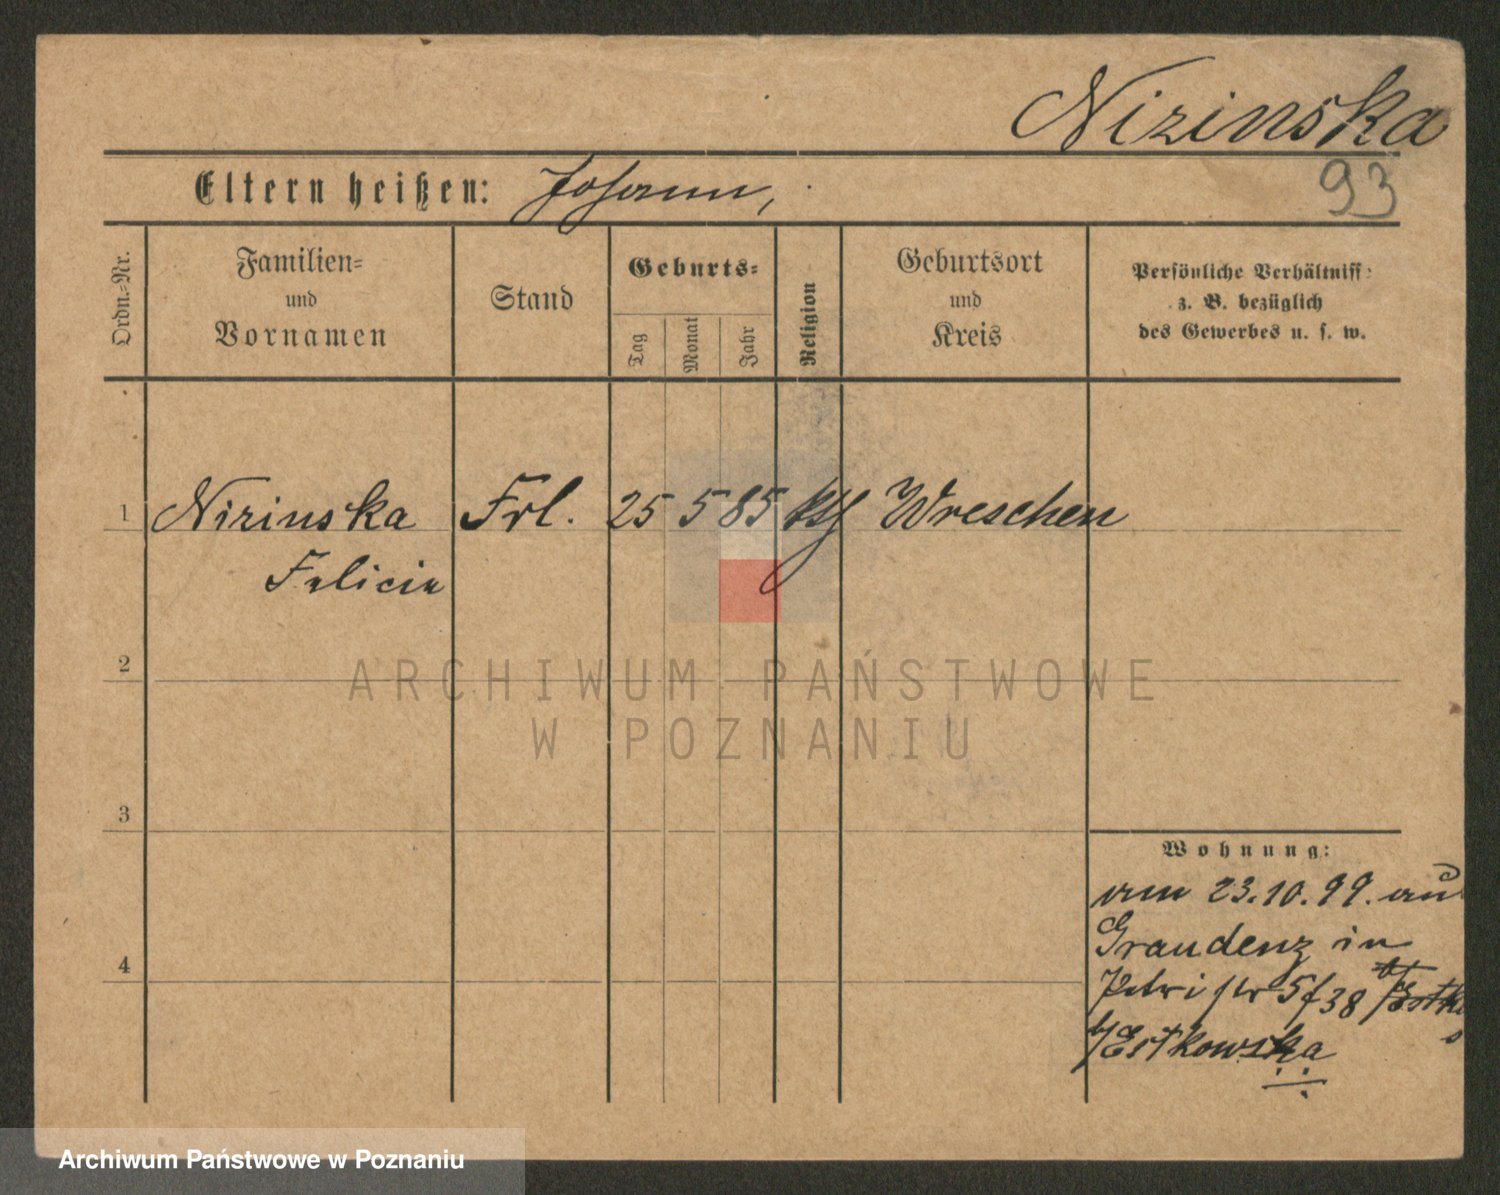 Nizinska
93
Eltern heißen: Johann,
Ordn.-Nr.
Familien-
und
Vornamen
Stand
Geburts-
Tag
Monat
Jahr
Religion
Geburtsort
und
Kreis
Persönliche Verhältniss
z. B. bezüglich
des Gewerbes u. s. w.
1 Nizinska Frl. 25 5 85 kth Wreschen
Felicia
2
ARCHIWUM PAŃSTWOWE
W POZNANIU
3
Wohnung:
vom 23.10.99. aus
Graudenz in
4
Petri str 5 f 38
b/Estkowska
Archiwum Państwowe w Poznaniu